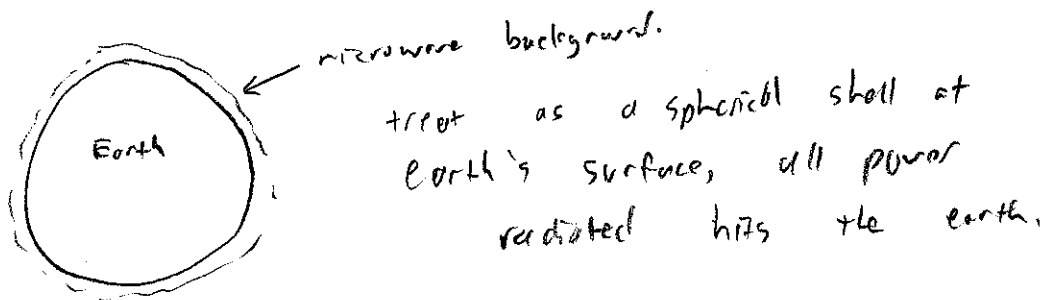 microwave background.
treat as a spherical shell at
Earth
earth's surface, all power
radiated hits the earth.